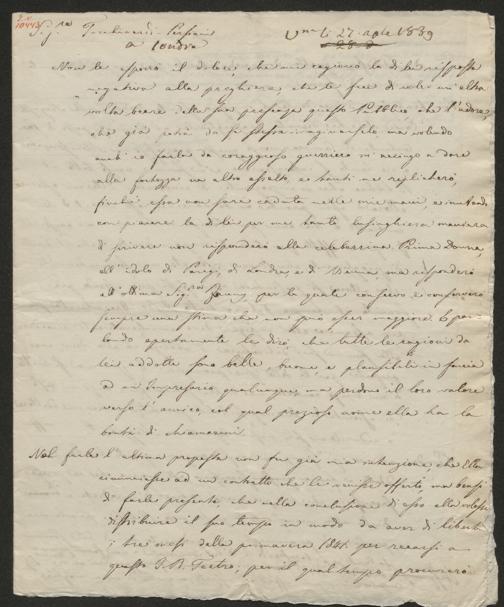 Sig.ra Tacchinardi-Persiani
a Londra
li 27 Aple 1839
28 d
Non le esporrò il dolore, che mi cagionò la di lei risposta
negativa alla preghiera, che le feci di voler un altra
volta beare della sua presenza questo Pubblico che l'adora,
che già potrà da se stessa immaginarselo ma volendo
anch'io farla da coraggioso guerriero mi accingo a dare
alla fortezza un altro assalto, e tanti ne replicherò,
finché essa non sarà caduta nelle mie mani, e imitando
con piacere la di lei per me tanto lusinghiera maniera
di scrivere non risponderò alla celeberrima Prima Donna,
all'idolo di Parigi, di Londra, e di Vienna ma risponderò
all'ottima Sig.ra Fanny, per la quale conservo e conserverò
sempre una stima che non può esser maggiore. E par-
lando apertamente le dirò, che tutte le ragioni da
lei addotte sono belle, buone e plausibili in faccia
ad un Impresario qualunque, ma perdono il loro valore
verso l'amico, col qual prezioso nome ella ha la
bontà di chiamarmi.
Nel farle l'ultima proposta non fu già mia intenzione, che Ella
rinunciasse ad un contratto che le venisse offerto ma bensì
di farle presente che nella conclusione di esso ella volesse
distribuire il suo tempo in modo da aver di libertà
i tre mesi della primavera 1841 per recarsi a
questo I. R. Teatro; per il qual tempo procurerò